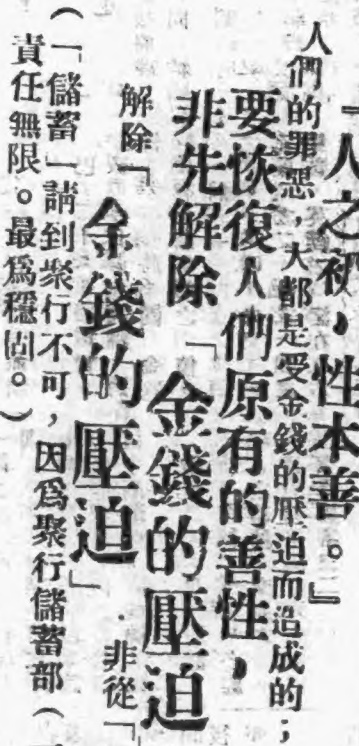 『人之初，性本善。』
人們的罪惡，大都是受金錢的壓迫而造成的；
要恢復人們原有的善性，
非先解除「金錢的壓迫
解除「金錢的壓迫」．非從「
（「儲蓄」請到聚行不可，因爲聚行儲蓄部（
責任無限。最爲穩固。）